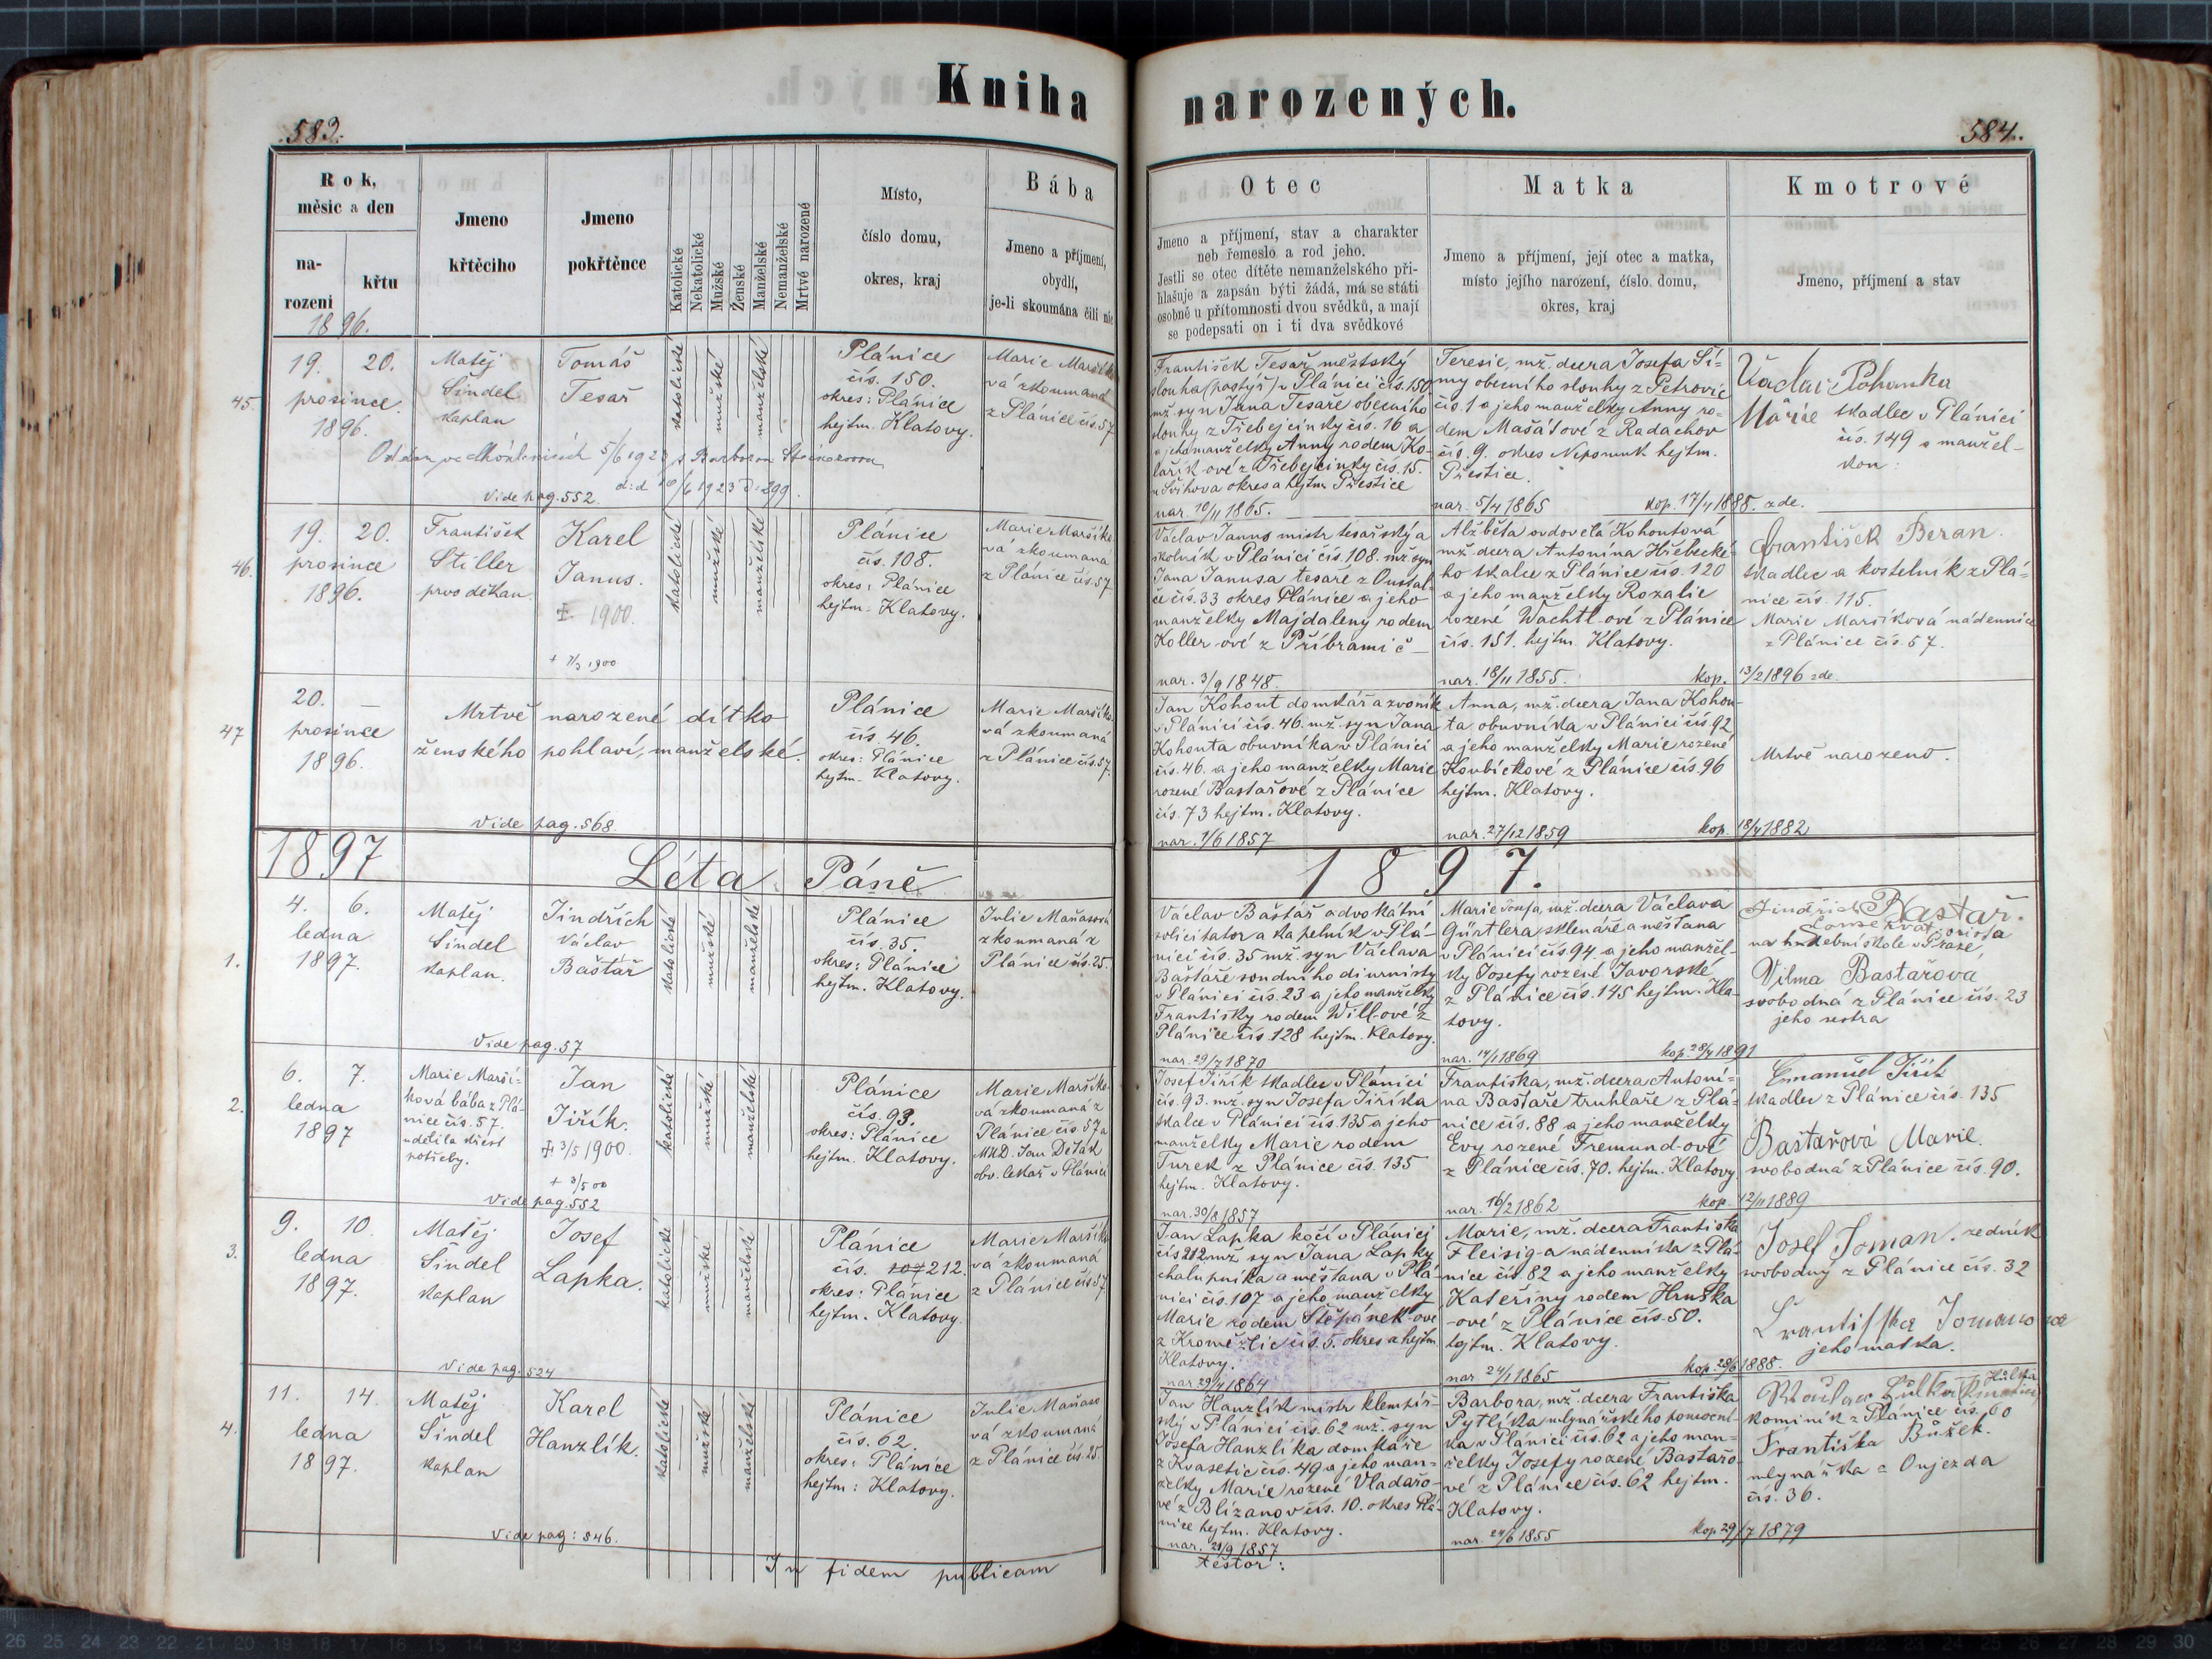 Kniha narozených.
583.
584.
Rok,
měsíc a den
na-
rození
křtu
1896.
Jmeno
křtěcího
Jmeno
pokřtěnce
Katolické
Nekatolické
Mužské
Ženské
Manželské
Nemanželské
Mrtvé narozené
Místo,
číslo domu,
okres, kraj
Bába
Jmeno a příjmení,
obydlí,
je-li skoumána čili nic
Otec
Jmeno a příjmení, stav a charakter
neb řemeslo a rod jeho.
Jestli se otec dítěte nemanželského při-
hlašuje a zapsán býti žádá, má se státi
osobně u přítomnosti dvou svědků, a mají
se podepsati on i ti dva svědkové
Matka
Jmeno a příjmení, její otec a matka,
místo jejího narození, číslo domu,
okres, kraj
Kmotrové
Jmeno, příjmení a stav
45.
19. 20.
prosince
1896.
Matěj
Šindel
kaplan
Tomáš
Tesař
katolické
mužské
manželské
Plánice
čís. 150.
okres: Plánice
hejtm. Klatovy.
Marie Maršíko-
vá zkoumaná
z Plánice čís. 57
5/6 1923 s Barborou
Vide pag. 552.
František Tesař městský
slouha (pastýř) v Plánici čís. 150
mž. syn Jana Tesaře obecního
slouhy z Třebejčinky čís. 16 a
a jeho manželky Anny rodem Ko-
lařík-ové z Třebejčinky čís. 15.
u Švihova okres a hejtm. Přestice
nar. 10/11 1865.
Teresie, mž. dcera Josefa Ší-
my obecního slouhy z Petrovic
čís. 1 a jeho manželky Anny ro-
dem Mašátové z Radachov
čís. 9. okres Nepomuk hejtm.
Přestice.
nar. 5/4 1865
kop. 17/4 1888. zde.
Václav Pohanka
Marie tkadlec v Plánici
čís. 149 s manžel-
kou:
46.
19. 20.
prosince
1896.
František
Stiller
prvoděkan.
Karel
Janus.
1900.
+ 7/3 1900
katolické
mužské
manželské
Plánice
čís. 108.
okres: Plánice
hejtm. Klatovy.
Marie Maršíko-
vá zkoumaná
z Plánice čís. 57
Václav Janus mistr tesařský a
školník v Plánici čís. 108. mž. syn
Jana Janusa tesaře z
čís. 33 okres Plánice a jeho
manželky Majdaleny rodem
Koller-ové z Příbrami č –
nar. 3/9 1848.
Alžběta ovdovělá Kohoutová
mž. dcera Antonína Hřebecké-
ho tkalce z Plánice čís. 120
a jeho manželky Rozalie
rozené Wachtl-ové z Plánice
čís. 151. hejtm. Klatovy.
nar. 18/11 1855.
kop. 13/2 1896 zde.
František Beran.
tkadlec a kostelník z Plá-
nice čís. 115.
Marie Maršíková nádennice
z Plánice čís. 57.
47
20. –
prosince
1896.
Mrtvě narozené dítko
ženského pohlaví, manželské.
Plánice
čís. 46.
okres: Plánice
hejtm. Klatovy.
Marie Maršíko-
vá zkoumaná
z Plánice čís. 57.
Vide pag. 568.
Jan Kohout domkář a zvoník
v Plánici čís. 46. mž. syn Jana
Kohouta obuvníka v Plánici
čís. 46. a jeho manželky Marie
rozené Bastařové z Plánice
čís. 73 hejtm. Klatovy.
nar. 1/6 1857
Anna, mž. dcera Jana Kohou-
ta obuvníka v Plánici čís. 92
a jeho manželky Marie rozené
Koubíčkové z Plánice čís. 96
hejtm. Klatovy.
nar. 27/12 1859
kop. 18/4 1882
Mrtvě narozeno.
1897 Léta Páně 1897.
1.
4. 6.
ledna
1897.
Matěj
Šindel
kaplan.
Jindřich
Václav
Baštář
katolické
mužské
manželské
Plánice
čís. 35.
okres: Plánice
hejtm. Klatovy.
Julie Maňasová
zkoumaná z
Plánice čís. 25.
Vide pag. 57
Václav Baštář advokátní
solicitator a kapelník v Plá-
nici čís. 35 mž. syn Václava
Baštáře soudního diurnisty
v Plánici čís. 23 a jeho manželky
Františky rodem Will-ové z
Plánice čís. 128 hejtm. Klatovy.
nar. 29/7 1870
Marie Josefa, mž. dcera Václava
Gürtlera sklenáře a měšťana
v Plánici čís. 94 a jeho manžel-
ky Josefy rozené Javorské
z Plánice čís. 145 hejtm. Kla-
tovy.
nar. 14/1 1869
kop. 28/4 1891
Jindřich Bastař.
na hudební škole v Praze
Vilma Bastařová
svobodná z Plánice čís. 23
jeho sestra
2.
6. 7.
ledna
1897
Marie Marší-
ková bába z Plá-
nice čís. 57.
udělila křest
potřeby.
Jan
Jiřík.
3/5 1900.
+ 3/5 00
katolické
mužské
manželské
Plánice
čís. 93.
okres: Plánice
hejtm. Klatovy.
Marie Maršíko-
vá zkoumaná z
Plánice čís. 57 a
MUD. Jan Deták
obv. lékař v Plánici
Vide pag. 552
Josef Jiřík tkadlec v Plánici
čís. 93. mž. syn Josefa Jiříka
tkalce v Plánici čís. 135 a jeho
manželky Marie rodem
Turek z Plánice čís. 135
hejtm. Klatovy.
nar. 30/8 1857
Františka, mž. dcera Antoní-
na Bastaře truhláře z Plá-
nice čís. 88 a jeho manželky
Evy rozené Fremund-ové
z Plánice čís. 70. hejtm. Klatovy.
nar. 16/2 1862
kop. 12/11 1889
Emanuel Jiřík
tkadlec z Plánice čís. 135
Baštařová Marie.
svobodná z Plánice čís. 90.
3.
9. 10.
ledna
1897.
Matěj
Šindel
kaplan
Josef
Lapka.
katolické
mužské
manželské
Plánice
čís. 107 212.
okres: Plánice
hejtm. Klatovy.
Marie Maršíko-
vá zkoumaná
z Plánice čís. 57.
Vide pag. 524
Jan Lapka kočí v Plánici
čís. 212 mž. syn Jana Lapky
chalupníka a měšťana v Plá-
nici čís. 107 a jeho manželky
Marie rodem Štěpánek-ové
z Kroměždic čís. 5. okres a hejtm.
Klatovy.
nar. 29/4 1864
Marie, mž. dcera Františka
Fleisig-a nádenníka z Plá-
nice čís 82 a jeho manželky
Kateřiny rodem Hruška
-ové z Plánice čís. 50.
hejtm. Klatovy.
nar 24/1 1865
kop. 28/6 1888.
Josef Toman. zedník
svobodný z Plánice čís. 32
Františka Tomanova
jeho matka.
4.
11. 14.
ledna
1897.
Matěj
Šindel
kaplan
Karel
Hanzlík.
katolické
mužské
manželské
Plánice
čís. 62.
okres: Plánice
hejtm: Klatovy.
Julie Maňaso
vá zkoumaná
z Plánice čís. 25.
Vide pag: 546.
Jan Hanzlík mistr klempíř-
ský v Plánici čís. 62 mž. syn
Josefa Hanzlíka domkáře
z Kvasetic čís. 49 a jeho man-
želky Marie rozené Vladařo-
vé z Blížanov čís. 10. okres Plá-
nice hejtm. Klatovy.
nar. 21/9 1857
Barbora, mž. dcera Františka
Pytlíka mlynářského pomocní-
ka v Plánici čís. 62 a jeho man-
želky Josefy rozené Bastařo-
vé z Plánice čís. 62 hejtm.
Klatovy.
nar. 24/6 1855
kop 29/7 1879
kominík z Plánice čís. 60
Františka Bůžek.
mlynářka z Oujezda
čís. 36.
In fidem publicam
testor: